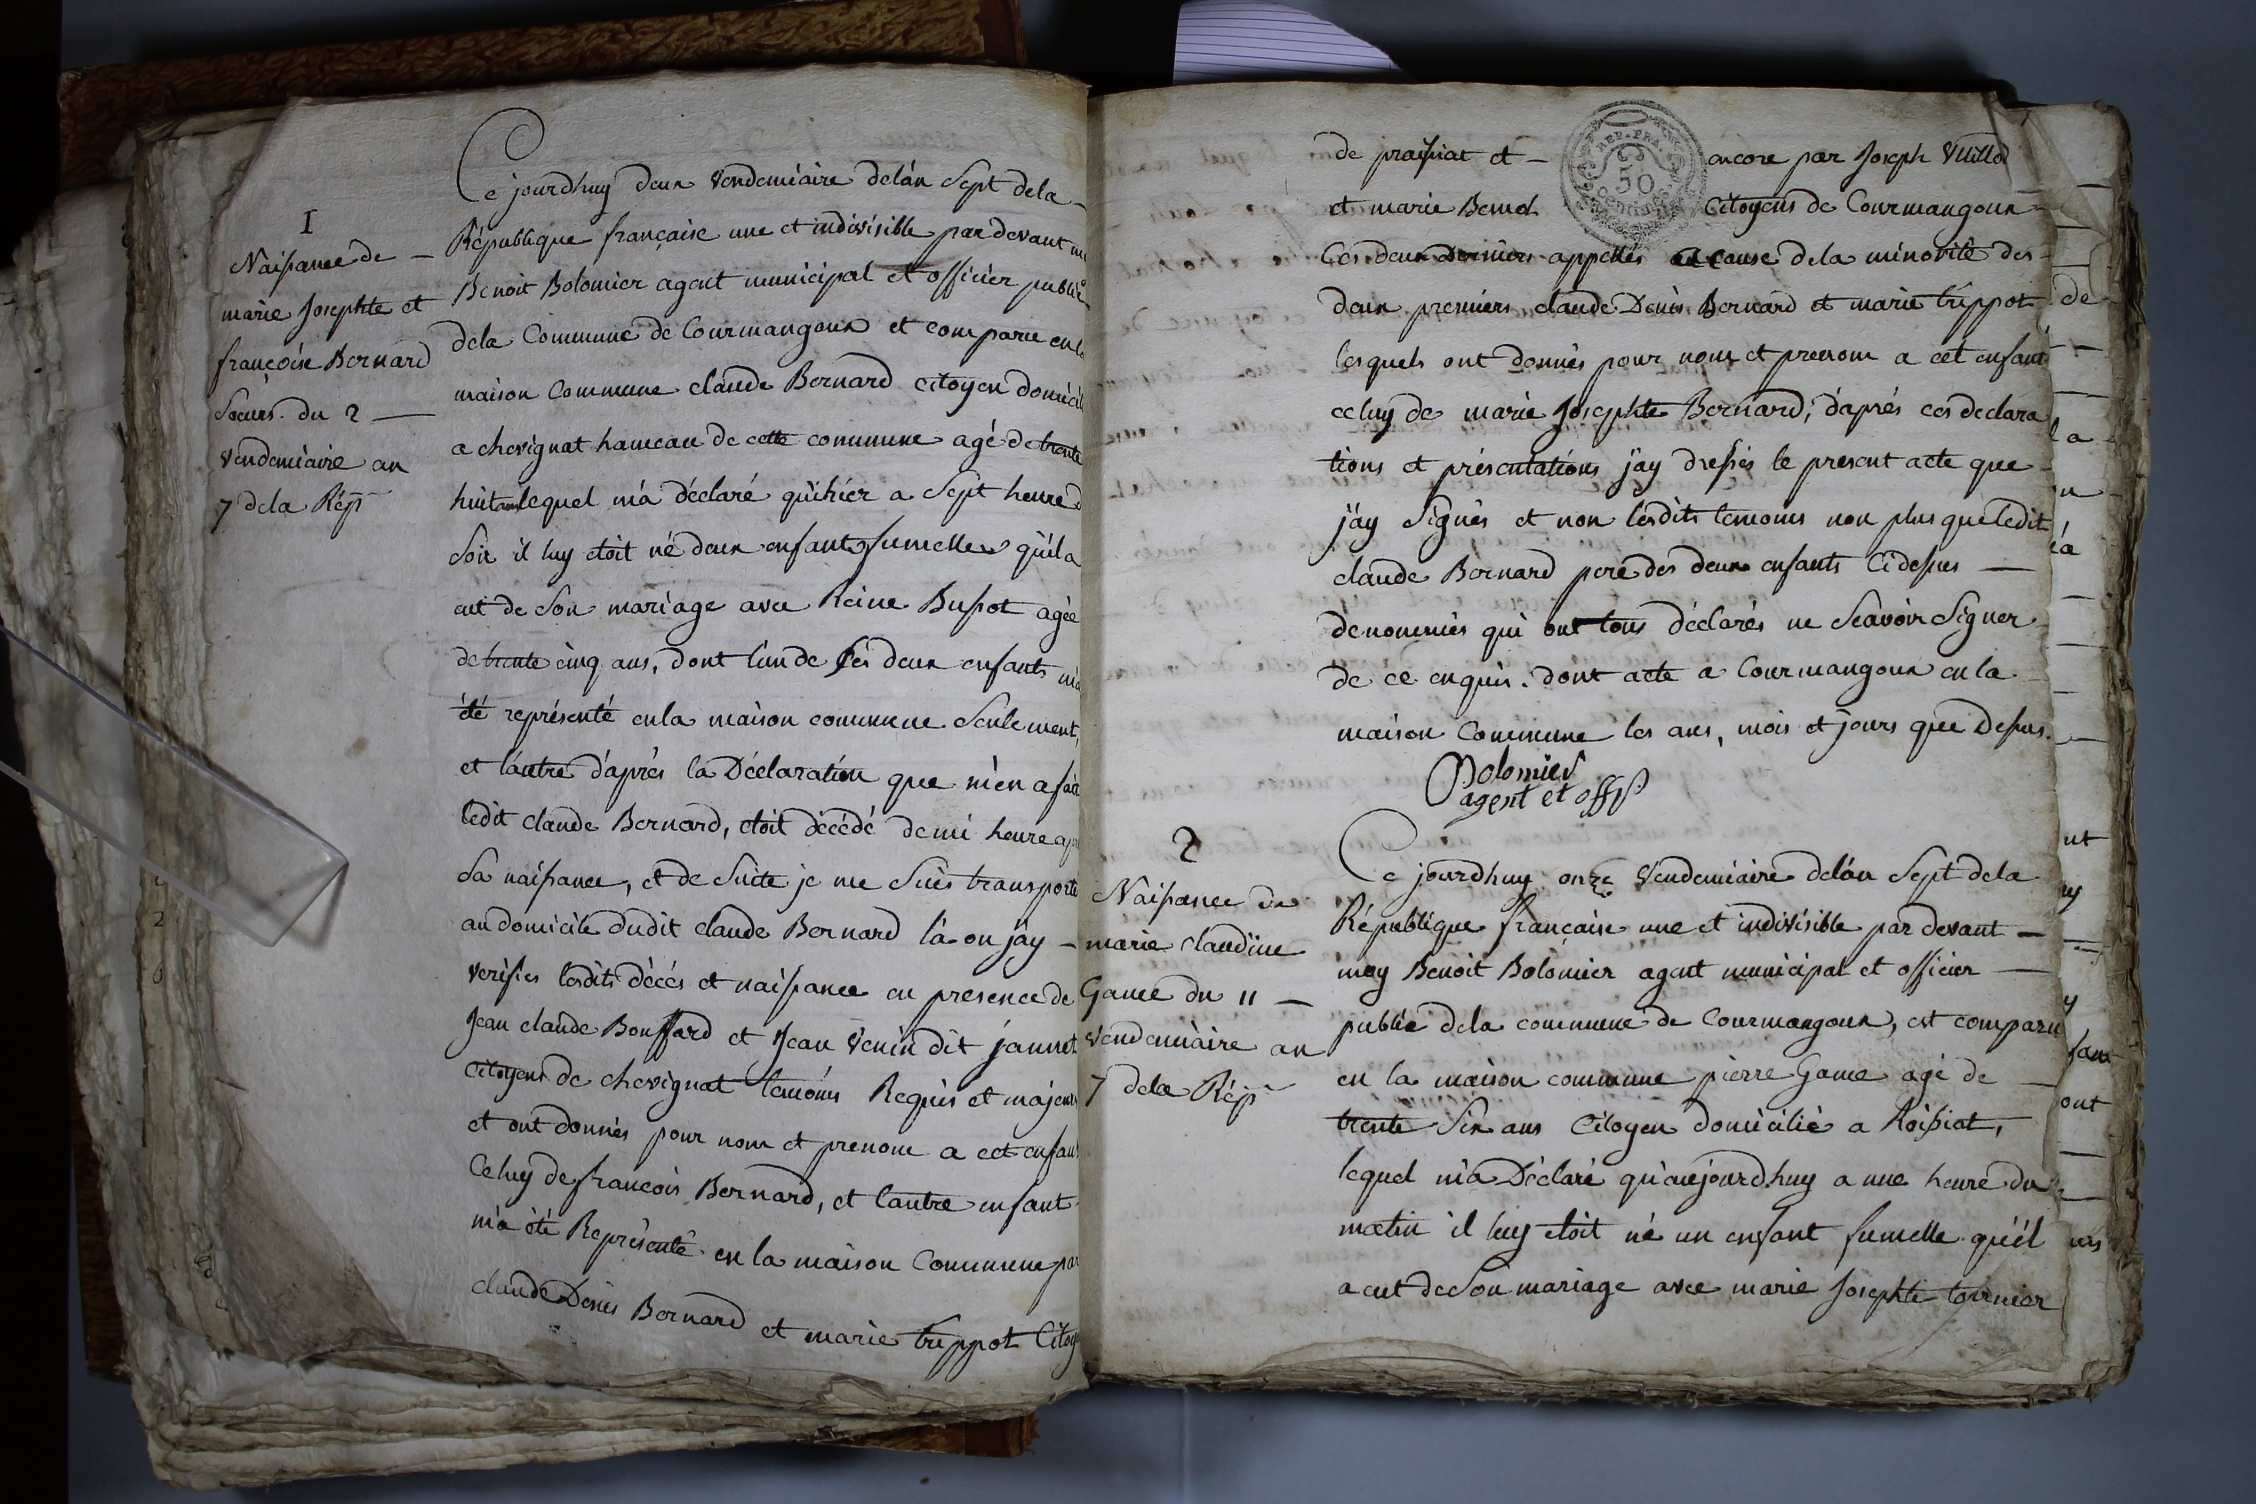 I
Naissance de —
marie Josephte et
francoise Bernard
Soeurs. du 2 —
Vendemiaire an
7 dela Rép
Ce jourdhuy deux Vendemiaire delàn Sept dela
République française une et indivisible par devant
Benoit Bolomier agent municipal et officier public
dela Commune de Courmangoux et comparu en la
maison Commune claude Bernard citoyen domicil
a chevignat hameau de cette commune agé de trente
huit ans lequel m'a déclaré qu'hier a Sept heure d
Soir il luy etoit né deux enfants fumelles qu'il a
eut de Son mariage avec Reine Bussot agée
de trente cinq ans, dont l'un de ces deux enfants m'a
été représenté en la maison commune Seulement,
et l'autre d'après la Déclaration que m'en a fait
ledit claude Bernard, etoit décédé demi heure apr
Sa naissance, et de Suite je me Suis transporté
au domicile dudit claude Bernard là ou j'ay —
verifies lesdits décès et naissance en presence de
Jean claude Bouffard et Jean Venin dit jannet
Citoyens de chevignat temoins Requis et majeurs
et ont donnés pour nom et prenom a cet enfant
Celuy de francois Bernard, et l'autre enfant
m'a été Représenté en la maison Commune par
claude Denis Bernard et marie trippot Citoy
de prassiat et —
REP. FRA.
50
Centimes
ancore par Joseph Vuillod
et marie Citoyens de Courmangoux
Ces deux Derniers appellés a cause dela minorité des
deux premiers claude Denis Bernard et marie trippot
lesquels ont donnés pour nom et prenom a cet enfant
celuy de marie Josephte Bernard, d'aprés ces declara
tions et présentations j'ay dressés le present acte que
j'ay Signés et non lesdits temoins non plus que ledit
claude Bernard pere des deux enfants Cidessus —
denommés qui ont tous déclarés ne Scavoir Signer
de ce enquis. dont acte a Courmangoux en la
maison Commune les ans, mois et jours que Dessus.
Bolomier
agent et off p
2
Naissance de
marie claudine
Game du 11 —
Vendemiaire an
7 dela Rép
Ce jourdhuy onze Vendemiaire delàn Sept dela
République française une et indivisible par devant —
moy Benoit Bolomier agent municipal et officier —
public dela commune de Courmangoux, est comparu
en la maison commune pierre Game agé de —
trente Six ans Citoyen domicilié a Roissiat,
lequel m'a Déclaré qu'aujourd.huy a une heure du
matin il luy etoit né un enfant fumelle qu'il
a eut de Son mariage avec marie Josephte tournier